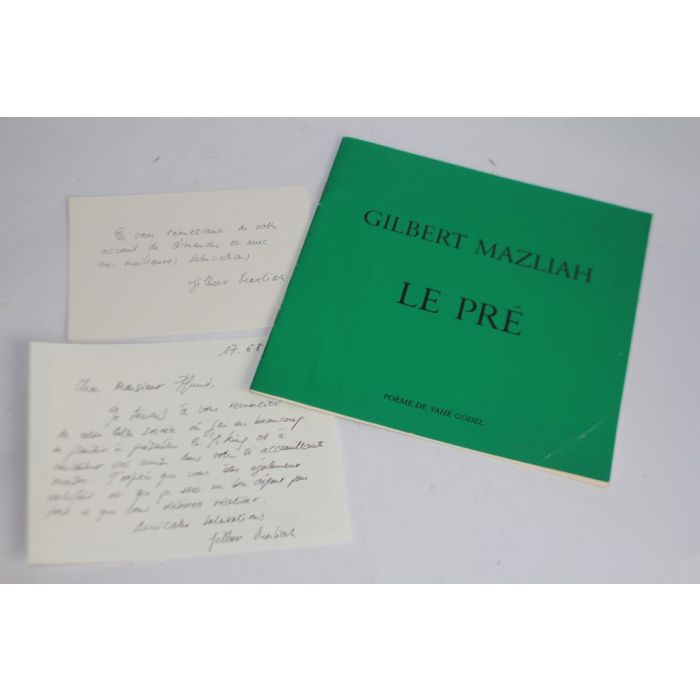 En vous remerciant de votre
accueil de dimanche et avec
mes meilleures salutations
Gilbert Mazliah
17.6.8
Cher Monsieur
Je tenais à vous remercier
de votre belle soirée où j'ai eu beaucoup
de plaisir à présenter le et à
rencontrer vos amis dans votre si accueillant
J'espère que vous êtes également
satisfait et que ça sera un bon départ pour
tout ce que vous désirez réaliser.
Amicales salutations
Gilbert Mazliah
GILBERT MAZLIAH
LE PRÉ
POÈME DE VAHÉ GODEL